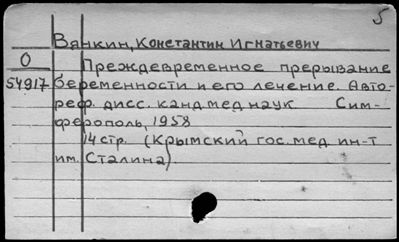 5
Вянкин, Константин Игнатьевич
О
Преждевременное прерывание
54917
беременности и его лечение. Авто-
реф. дисс. канд. мед наук Сим-
ферополь, 1958
14 стр. (Крымский гос. мед ин-т
им. Сталина)